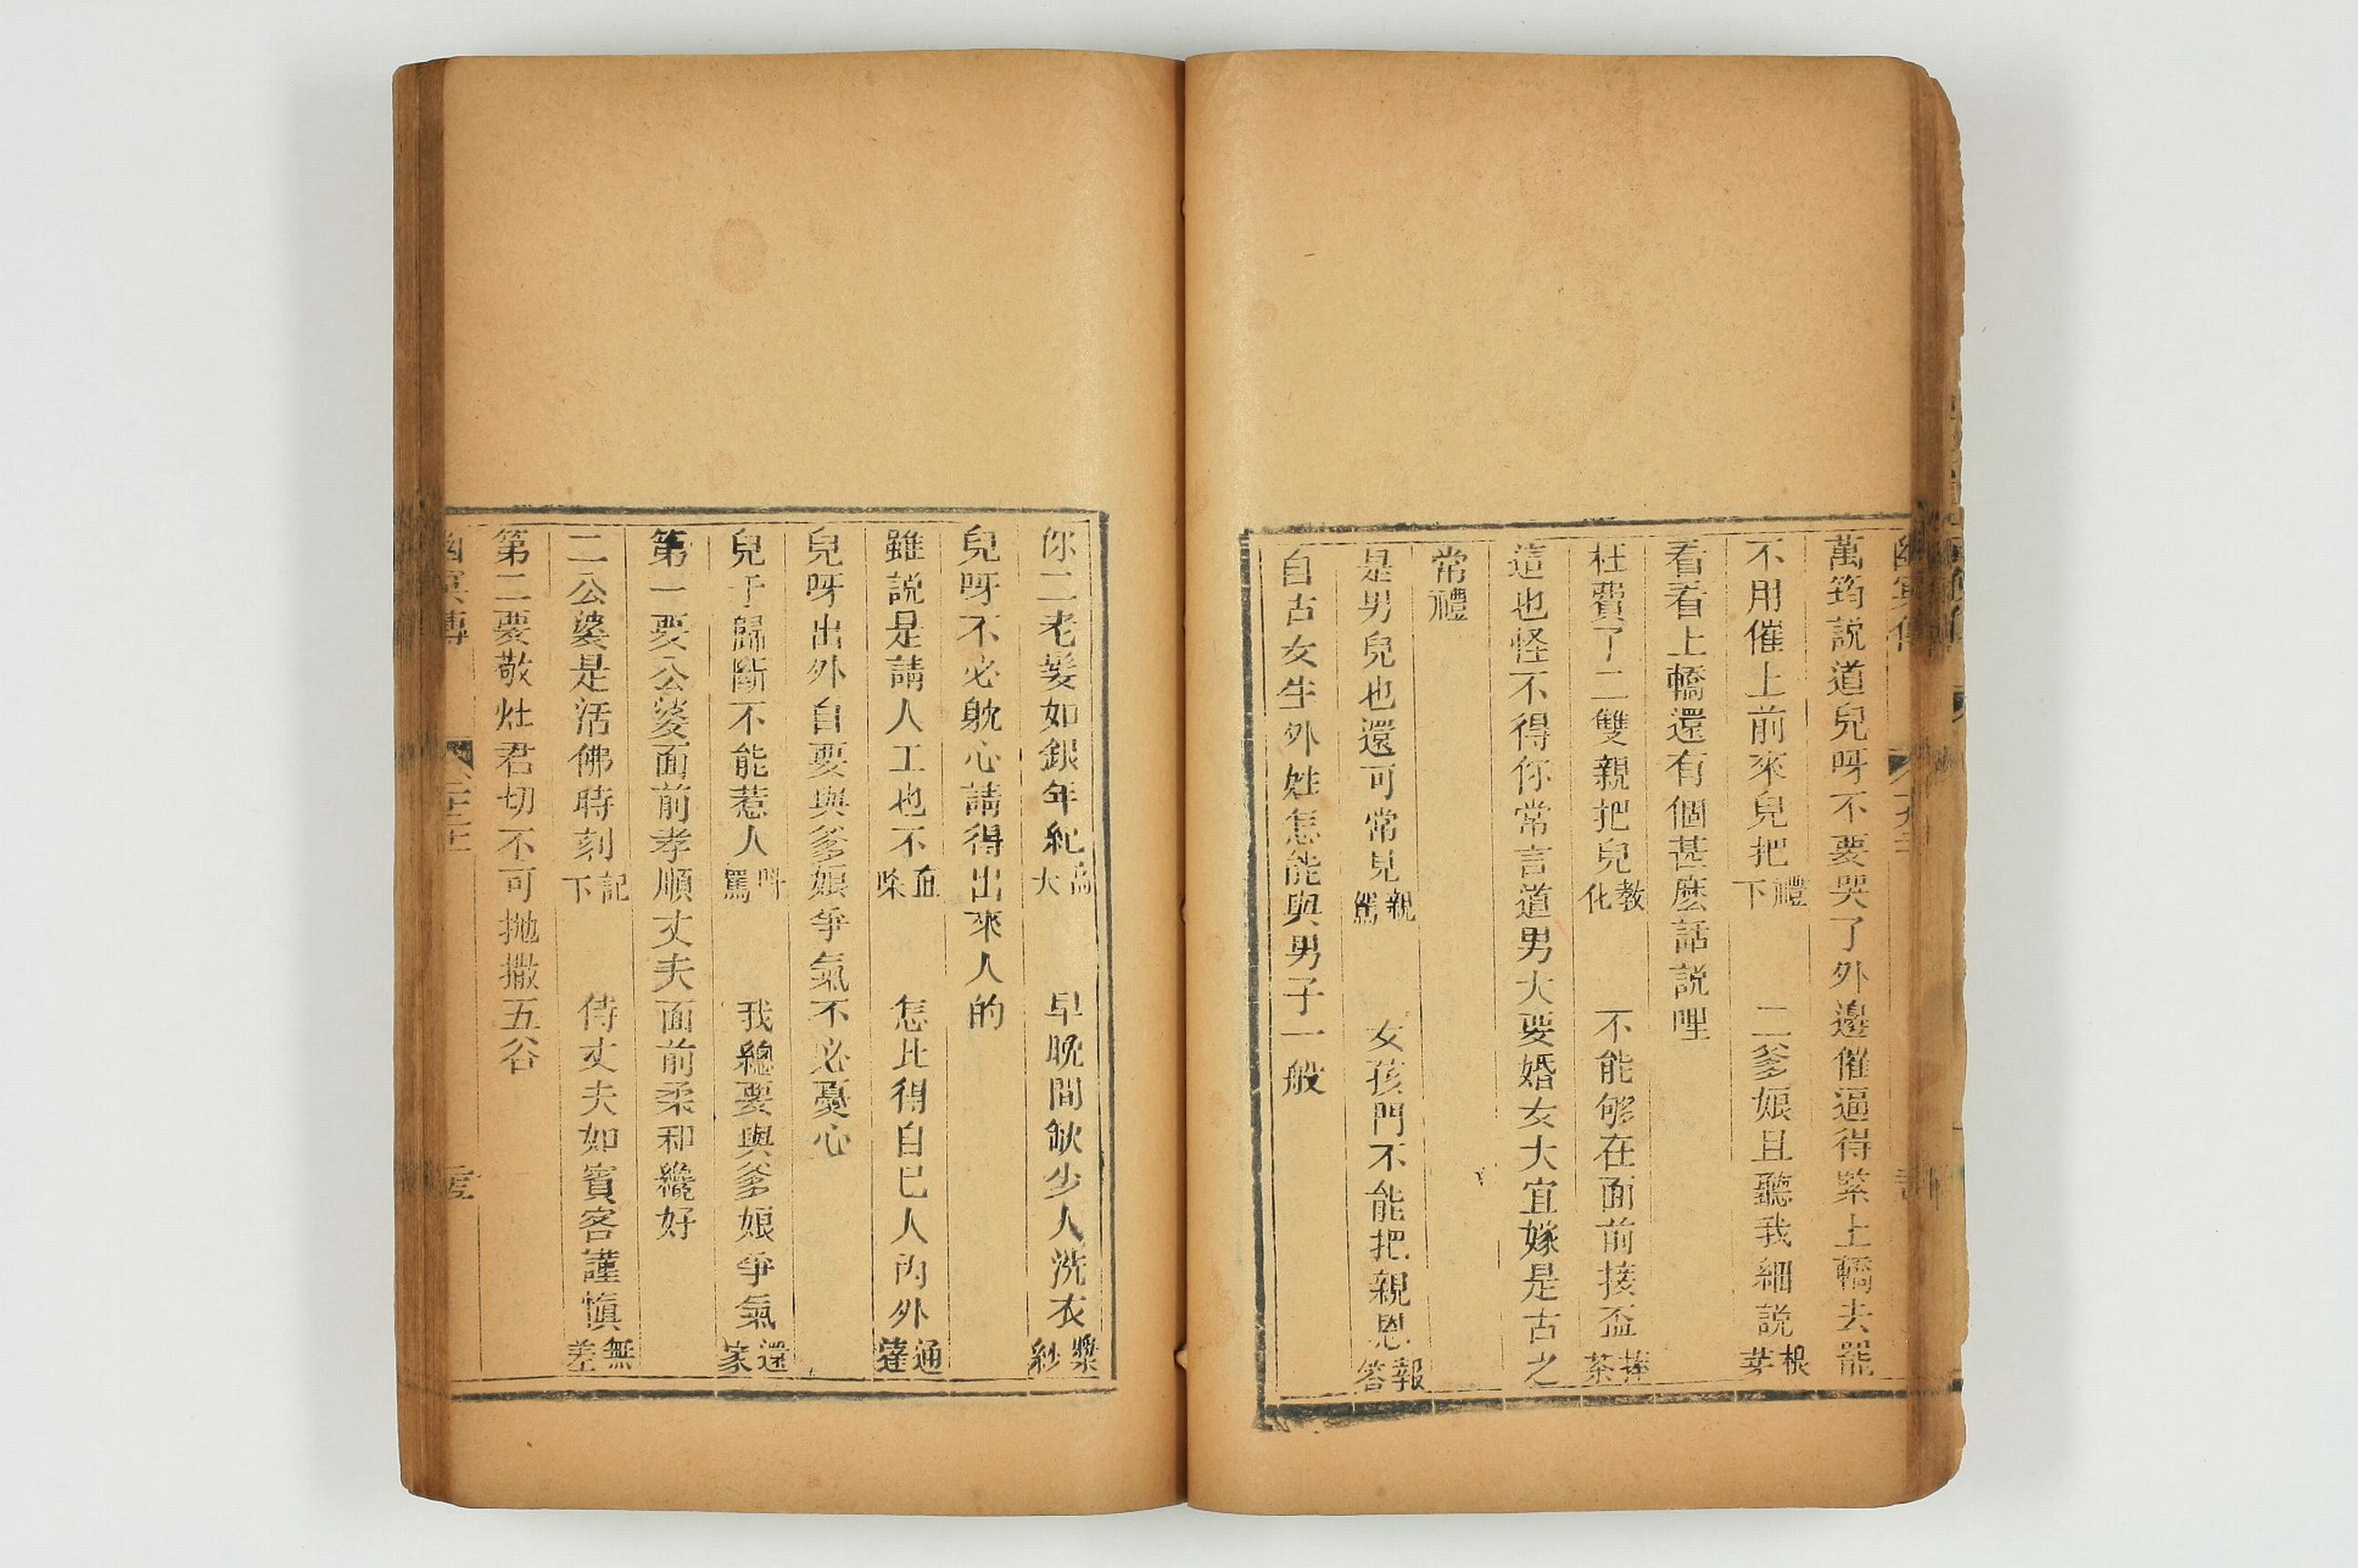 萬筠説道兒呀不要哭了外邊催逼得緊上轎去罷
不用催上前來兒把禮下　二爹娘且聽我細説根芽
看看上轎還有個甚麽話説哩
枉費了二雙親把兒教化　不能够在面前接盃捧茶
這也怪不得你常言道男大要婚女大宜嫁是古之
常禮
是男兒也還可常見親駕　女孩門不能把親恩報答
自古女生外姓怎能與男子一般
你二老髮如銀年紀高大　早晚間缺少人洗衣漿紗
兒呀不必躭心請得出來人的
雖説是請人工也不　怎比得自已人內外通達
兒呀出外自要與爹娘爭氣不必憂心
兒于歸斷不能惹人駡　我總要與爹娘爭氣還家
第一要公婆面前孝順丈夫面前柔和纔好
二公婆是活佛時刻記下　侍丈夫如賓客謹慎無差
第二要敬灶君切不可抛撒五谷
幽冥傳